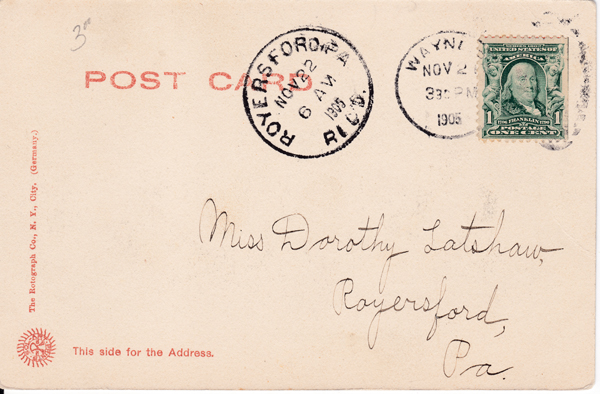 3
POST CARD
ROYERSFORD, PA
NOV 22
6 AM
1905
REC'D.
WAYNE
NOV 2
330 PM
1905
SERIES 1902
UNITED STATES OF
AMERICA
1 FRANKLIN 1
POSTAGE
ONE CENT
Miss Dorothy Latshaw,
Royersford,
Pa.
The Rotograph Co., N. Y., City. (Germany.)
This side for the Address.